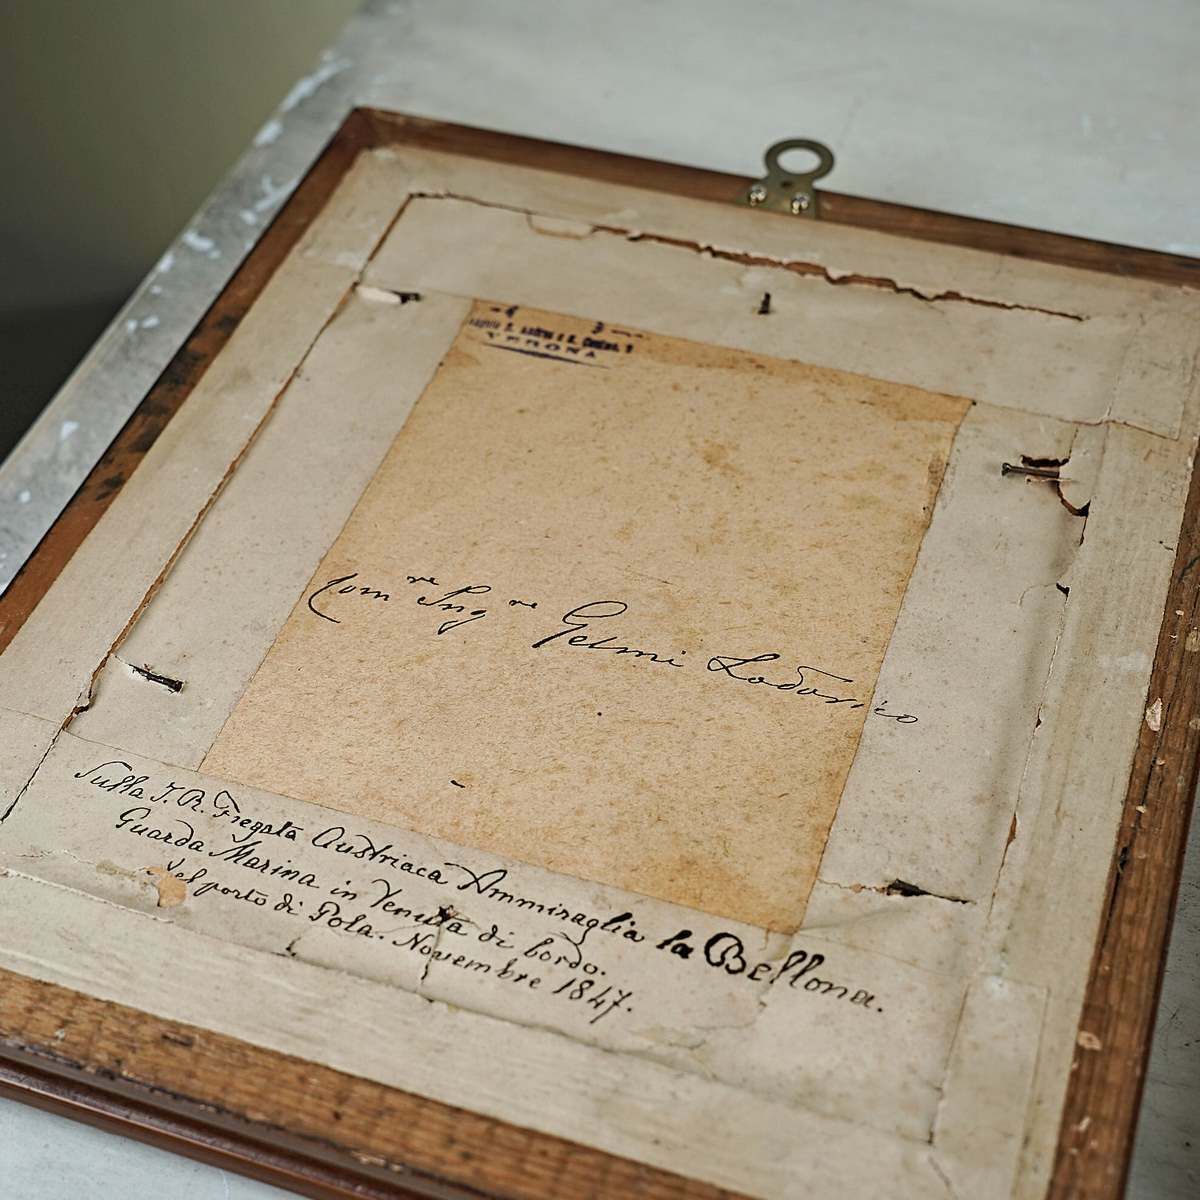 VERONA
Com.re Ing.re Gelmi Lodovico
Sulla I. R. Fregata Austriaca Ammiraglia la Bellona.
Guarda Marina in Tenuta di bordo.
Nel porto di Pola. Novembre 1847.